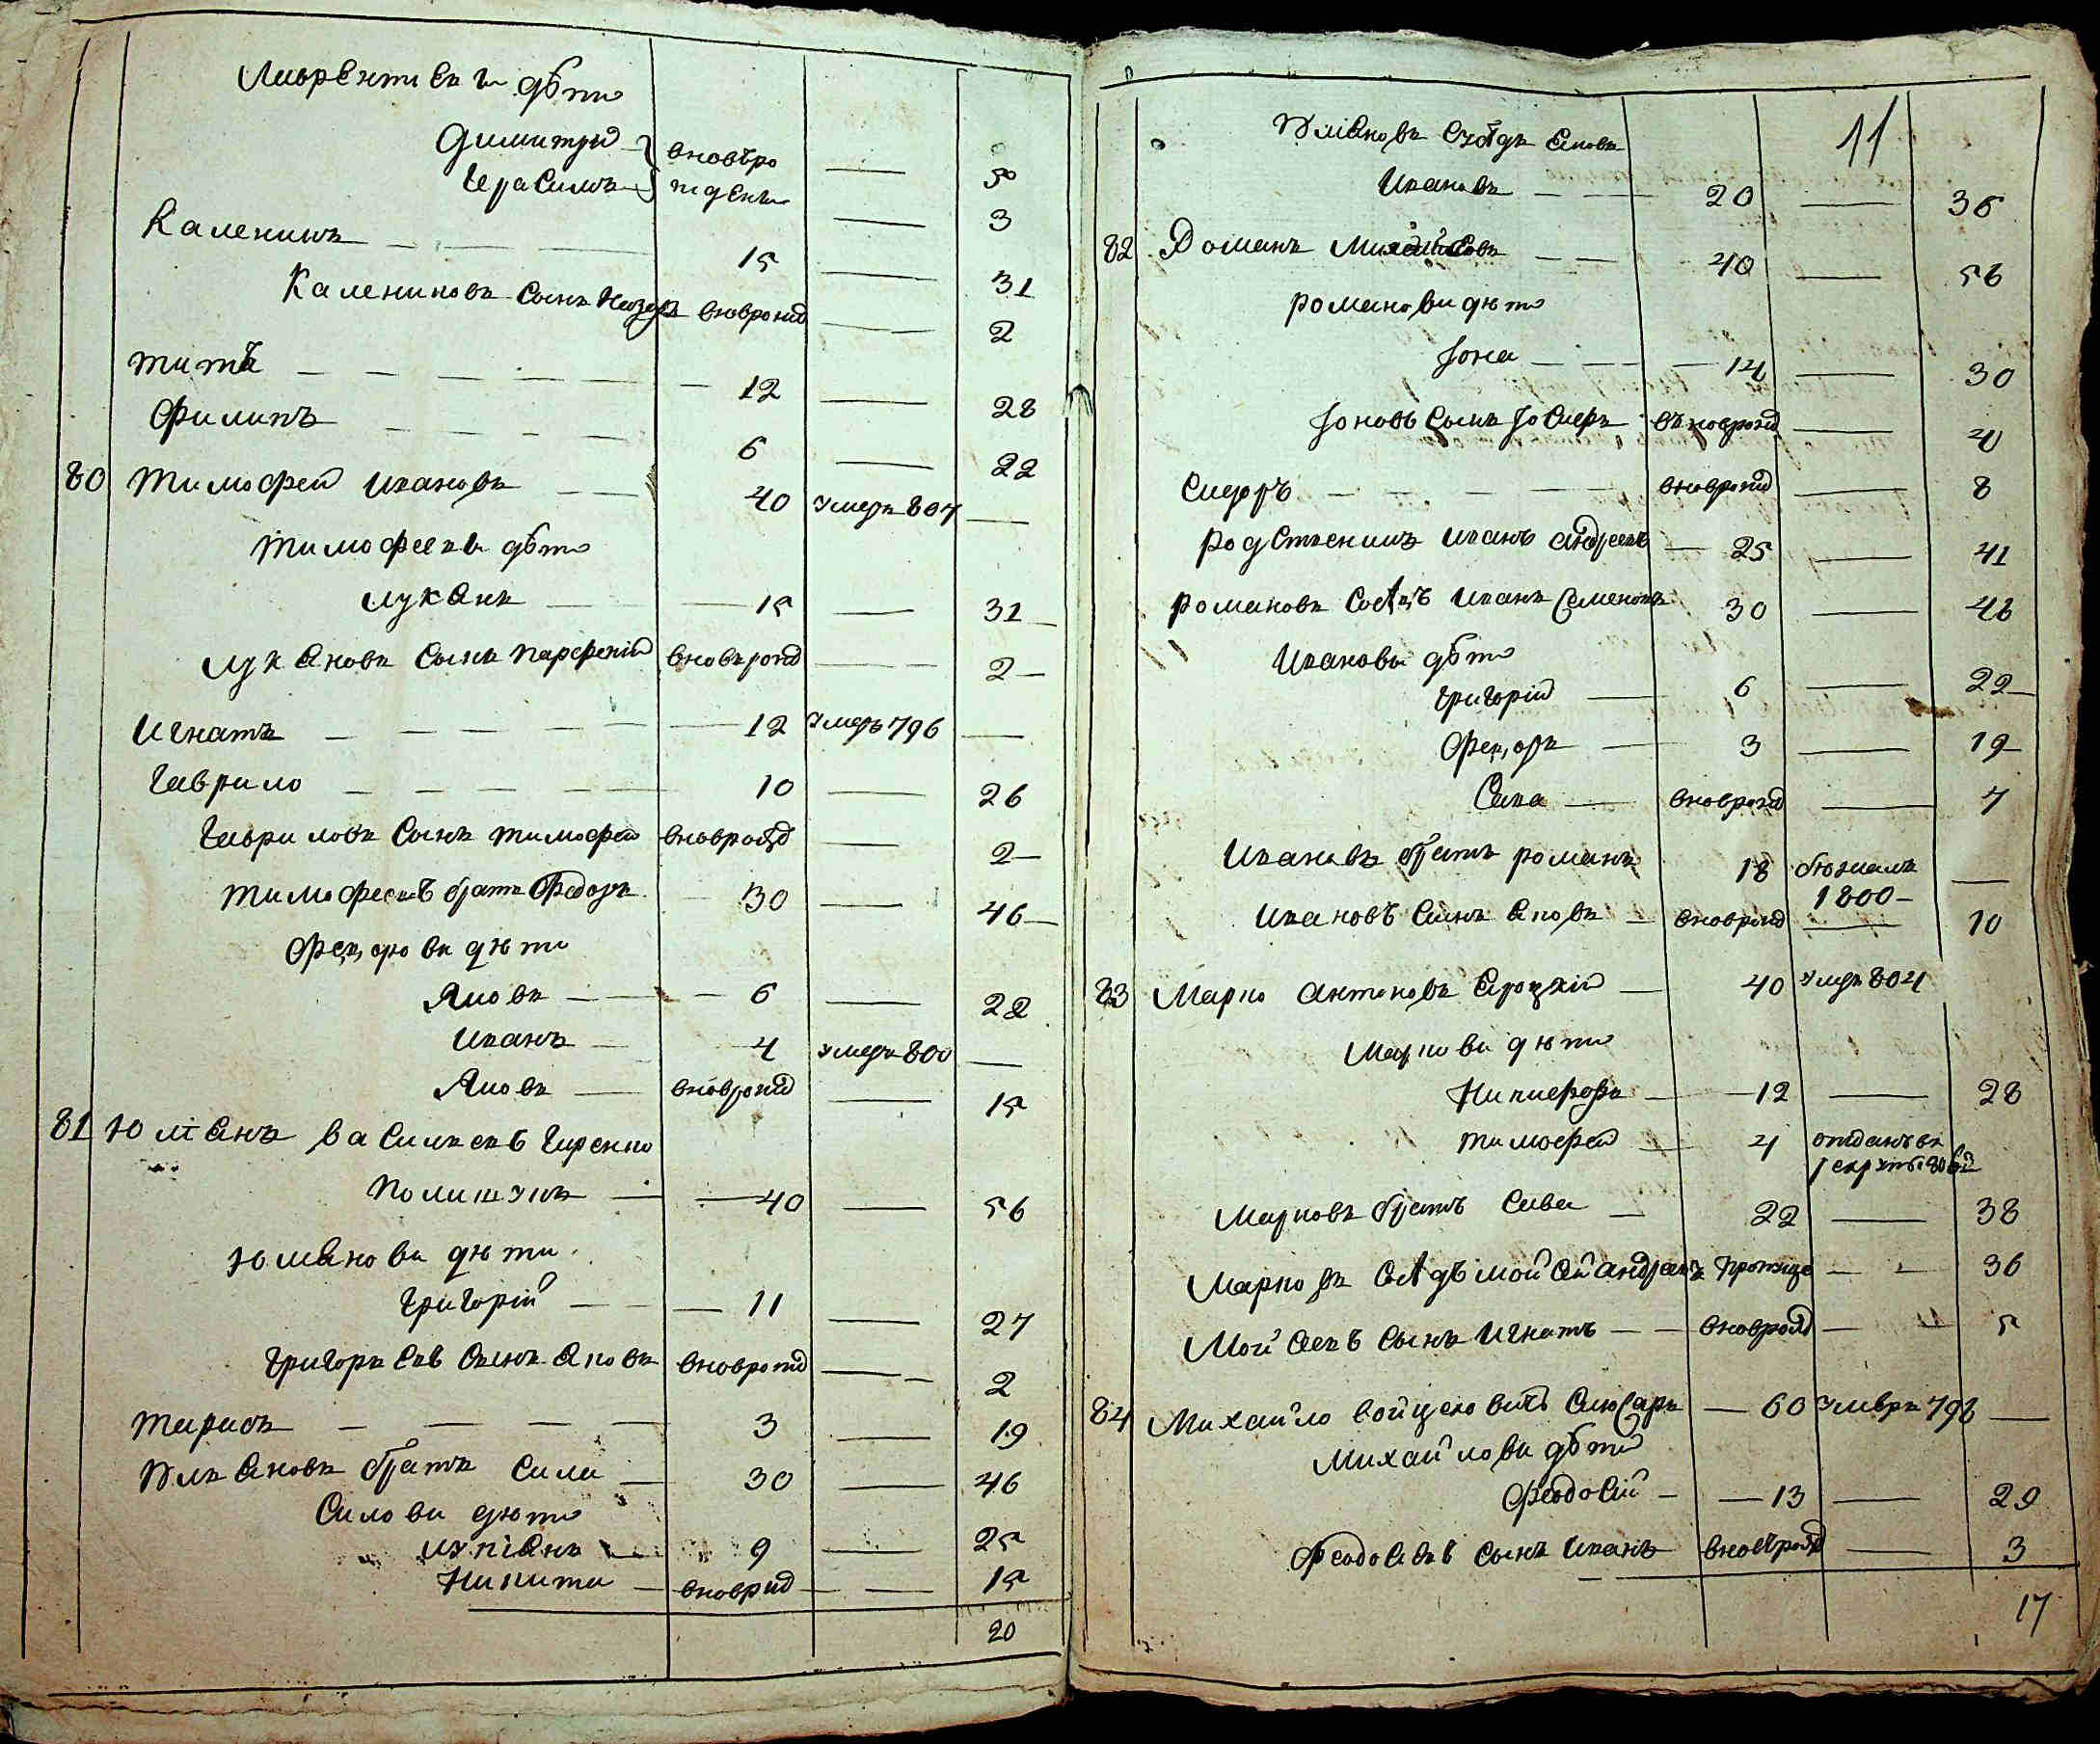 Лаврентиевы дѣти
Димитрий вновѣро — 5
Герасимъ ждены — 3
Каленикъ — 15 — 31
Калениковъ сынъ Назаръ вноврожд — 2
титъ — 12 — 28
Филипъ — 6 — 22
80 тимофей ивановъ — 40 умеръ 807 —
тимофеевы дѣти
лукянъ — 15 — 31
лукяновъ сынъ парфений вновърожд — 2
Игнатъ — 12 умеръ 796 —
Гаврило — 10 — 26
Гавриловъ сынъ тимофей вноврожд — 2
тимофеевъ братъ Федоръ 30 — 46
Федоровы дѣти
Яковъ — 6 — 22
иванъ — 4 умеръ 800 —
Яковъ — вноврожд — 15
81 Юліянъ василиевъ Гиренко
Полишукъ — 40 — 56
Юлияновы дѣти
григорій — 11 — 27
григориевъ сынъ яковъ вноврожд — 2
тарасъ — 3 — 19
Юлияновъ братъ сила — 30 — 46
Силовы дѣти
лукіянъ — 9 — 25
Никита — вноврожд — 15
20
11
Юлияновъ сусѣдъ яковъ
Ивановъ — 20 — 36
82 Романъ Михайловъ — 40 — 56
романовы дѣти
Іона — 14 — 30
Іоновъ сынъ Іосифъ въноврожд — 4
Сидоръ — вноврожд — 8
родственикъ иванъ андреевъ — 25 — 41
романовъ сосѣдъ иванъ семеновъ 30 — 46
Ивановы дѣти
григорій — 6 — 22
Федоръ — 3 — 19
Сава — вноврожд — 7
Ивановъ братъ романъ 18 бѣжалъ —
1800
ивановъ сынъ яковъ — вноврожд — 10
83 Марко антоновъ — 40 умеръ 804
Марковы дѣти
Никифоръ — 12 — 28
тимофей — 4 отданъ въ
рекруты 806
Марковъ братъ сава — 22 — 38
Марковъ сосѣдъ мойсей андреевъ — — 36
Мойсеевъ сынъ игнатъ — вноврожд — 5
84 Михайло войцеховичъ слюсаръ — 60 умеръ 796 —
Михайловы дѣти
Феодосій — 13 — 29
Феодосиевъ сынъ иванъ вновѣрожд — 3
17